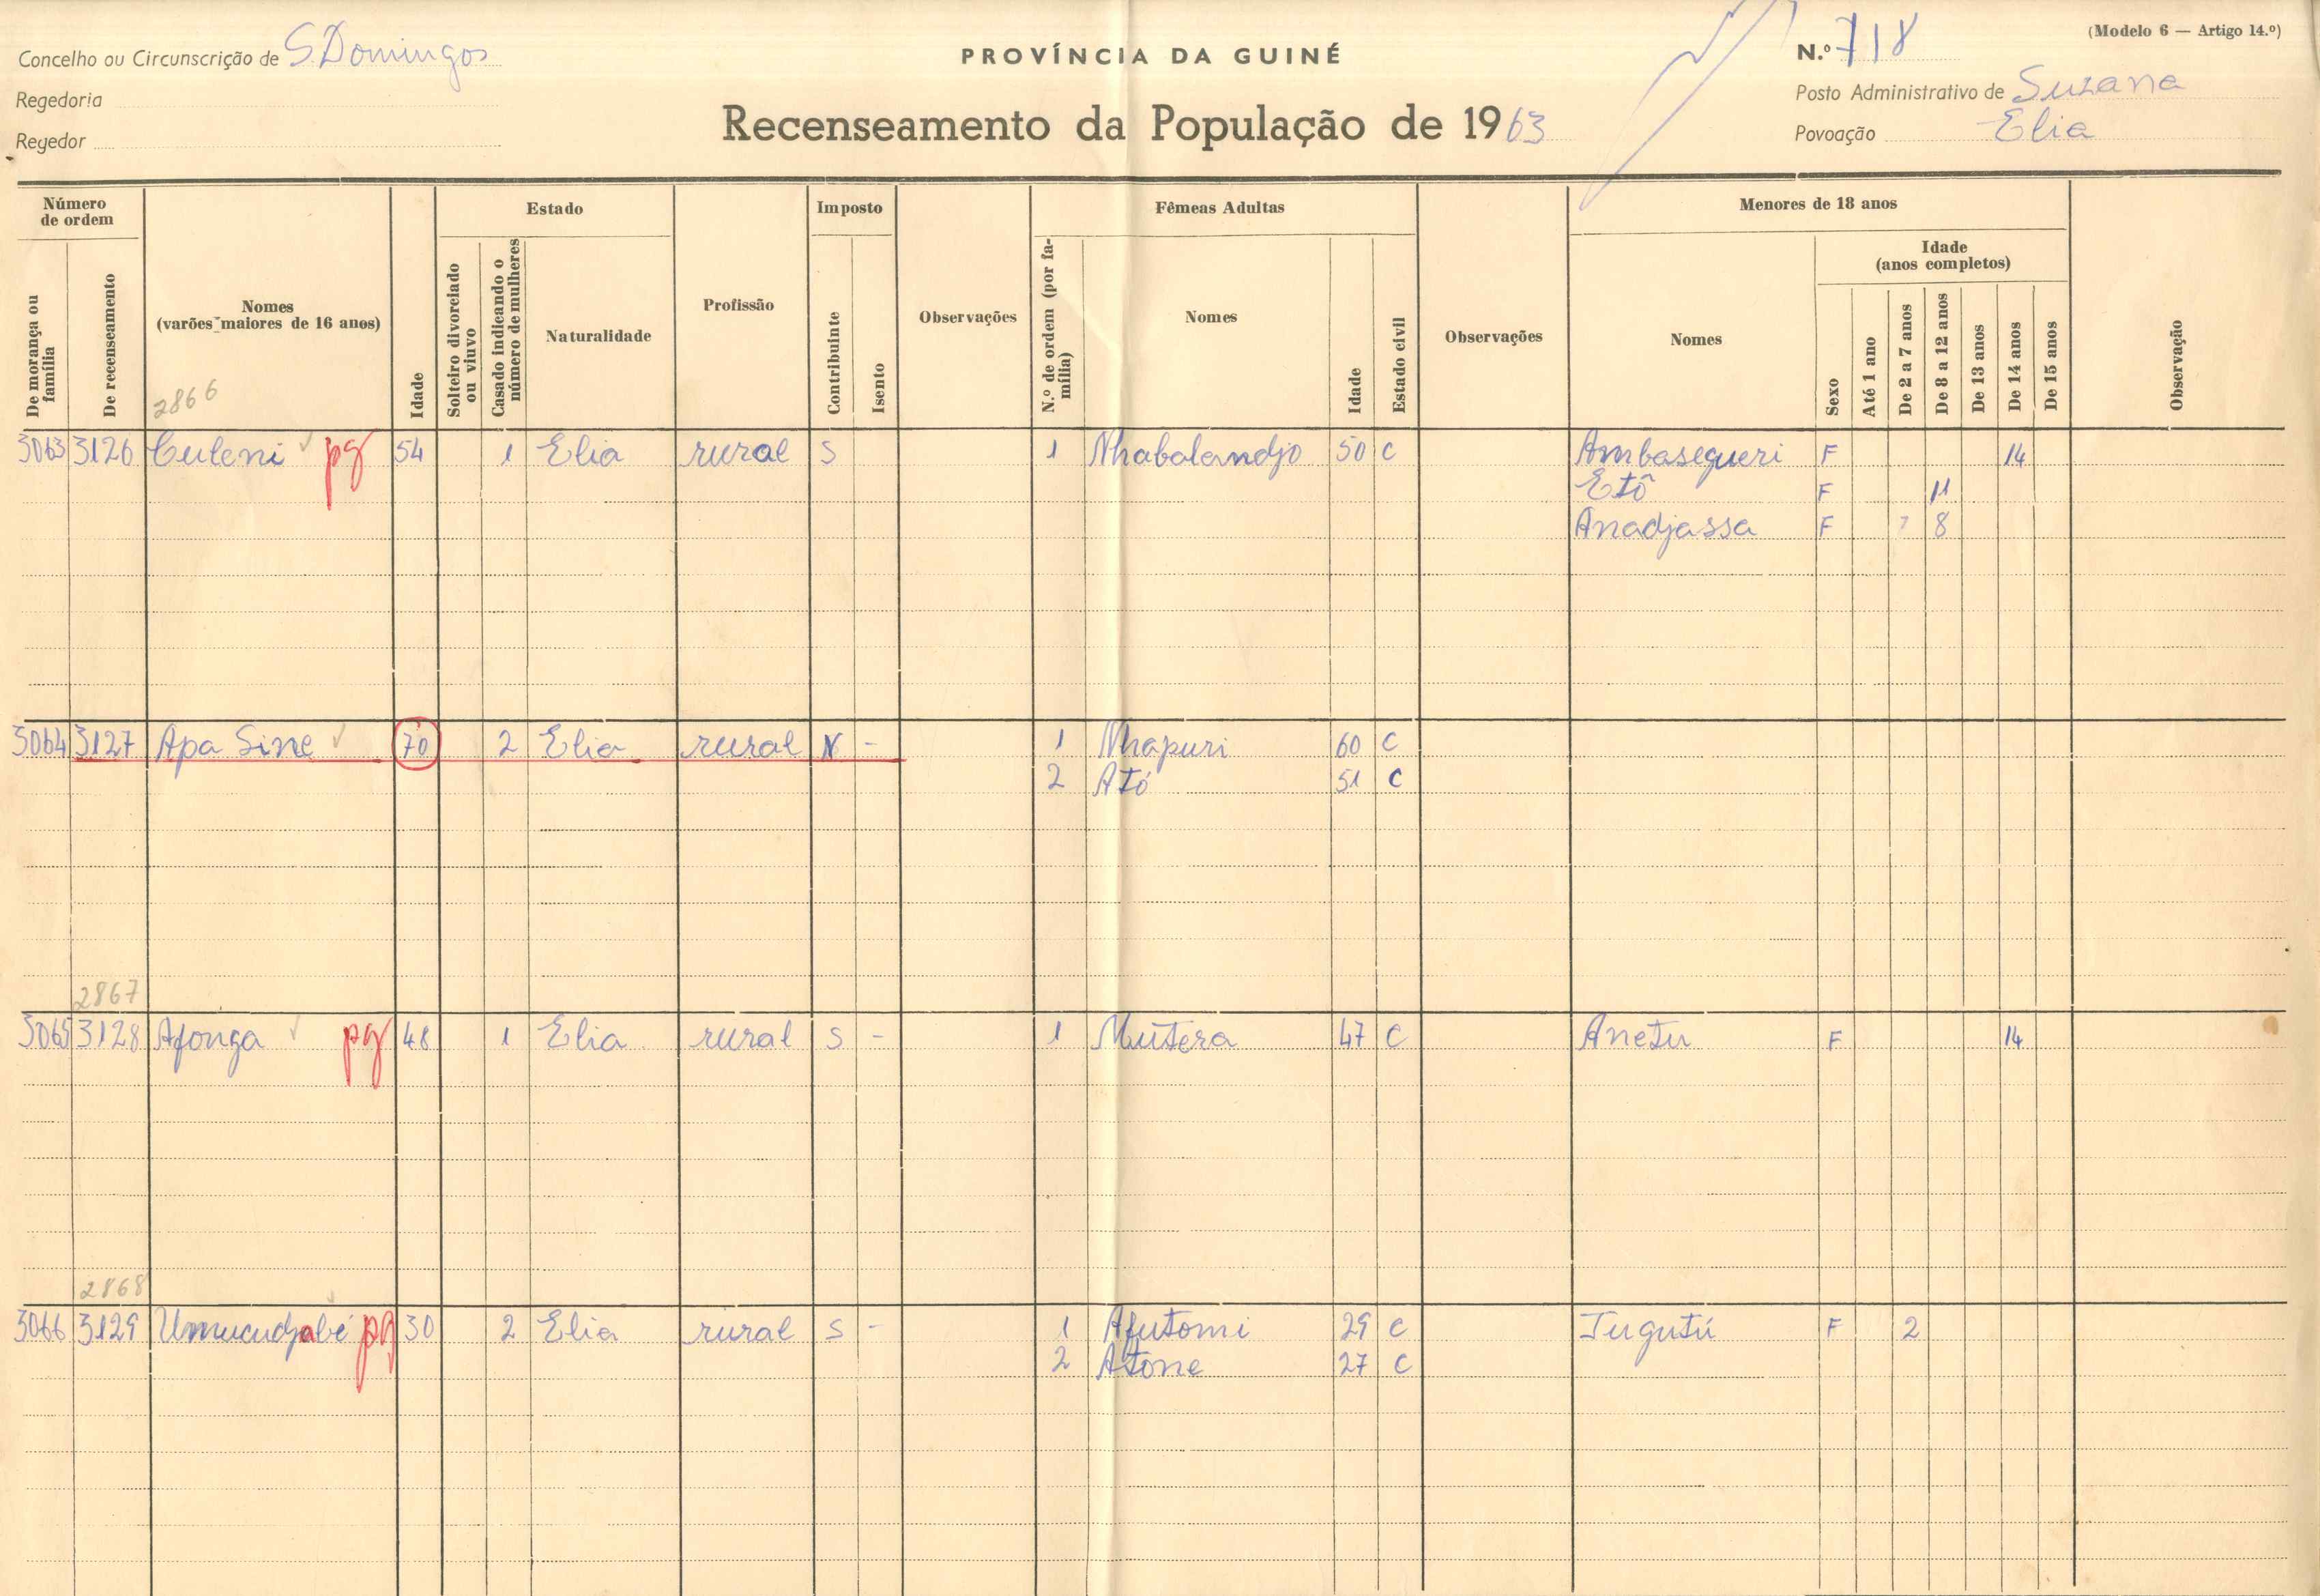 (Modelo 6 — Artigo 14.º)
Concelho ou Circunscrição de S. Domingos
PROVÍNCIA DA GUINÉ
N.º 718
Regedoria
Posto Administrativo de Suzana
Regedor
Recenseamento da População de 1963
Povoação Elia
Número de ordem
Estado
Imposto
Fêmeas Adultas
Menores de 18 anos
De morança ou família
De recenseamento
Nomes
(varões maiores de 16 anos)
2866
Idade
Solteiro divorciado ou viuvo
Casado indicando o número de mulheres
Naturalidade
Profissão
Contribuinte
Isento
Observações
N.º de ordem (por família)
Nomes
Idade
Estado civil
Observações
Nomes
Sexo
Idade
(anos completos)
Até 1 ano
De 2 a 7 anos
De 8 a 12 anos
De 13 anos
De 14 anos
De 15 anos
Observação
3063 3126 Culeni pg 54 1 Elia rural S 1 Nhabalandjo 50 C Ambasegueri F 14
Etô F 11
Anadjassa F 7 8
3064 3127 Apa Sine 70 2 Elia rural N - 1 Nhapuri 60 C
2 Ató 51 C
2867
3065 3128 Afonga pg 48 1 Elia rural S - 1 Mutera 47 C Anetu F 14
2868
3066 3129 Umucudjabé pg 30 2 Elia rural S - 1 Afutomi 29 C Jugutú F 2
2 Atone 27 C